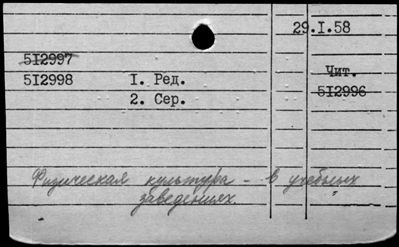 29.I.58
512997
512998 I. Ред. Чит.
2. Сер. 512996
Физическая культура - в учебных
заведениях "